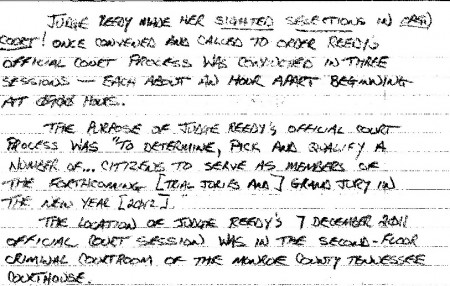 JUDGE REEDY MADE HER SIGHTED SELECTIONS IN OPEN
COURT! ONCE CONVENED AND CALLED TO ORDER REEDY'S
OFFICIAL COURT PROCESS WAS CONDUCTED IN THREE
SESSIONS — EACH ABOUT AN HOUR APART BEGINNING
AT 0900 HOURS.
THE PURPOSE OF JUDGE REEDY'S OFFICIAL COURT
PROCESS WAS "TO DETERMINE, PICK AND QUALIFY A
NUMBER OF... CITIZENS TO SERVE AS MEMBERS OF
THE FORTHCOMING [TRIAL JURIES AND] GRAND JURY IN
THE NEW YEAR [2012].
THE LOCATION OF JUDGE REEDY'S 7 DECEMBER 2011
OFFICIAL COURT SESSION WAS IN THE SECOND-FLOOR
CRIMINAL COURTROOM OF THE MONROE COUNTY TENNESSEE
COURTHOUSE.